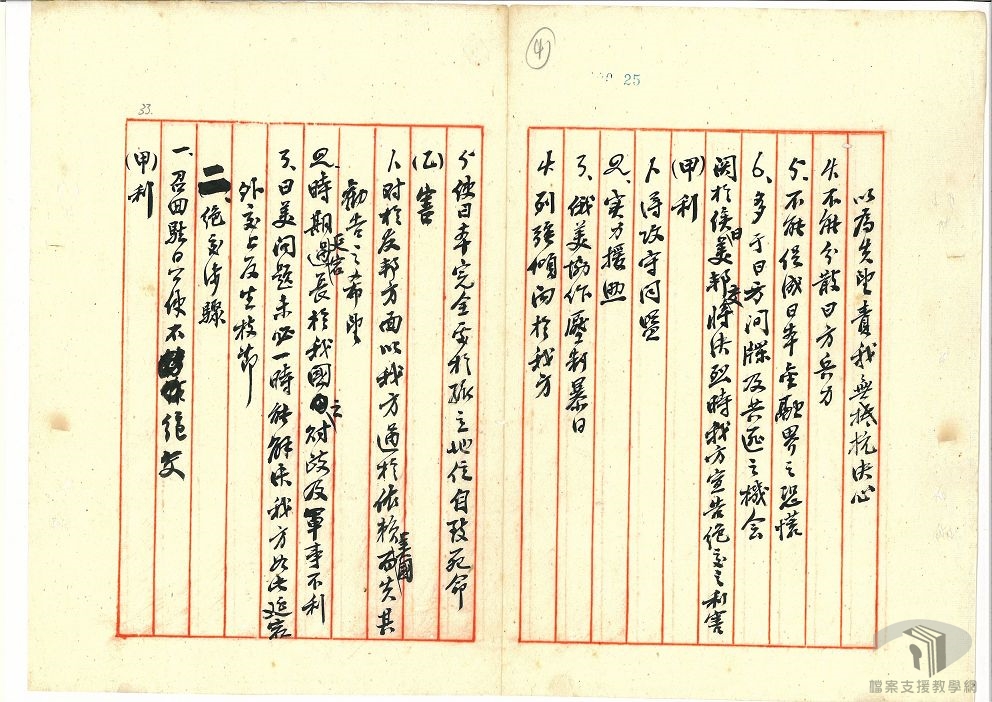 (4)
25
以為失望責我無抵抗決心
4、不能分散日方兵力
5、不能促成日本金融界之恐慌
6、多予日方间隙及共匪之機会
関於俟日美邦交将決烈時我方宣告絕交之利害
(甲)利
1、得攻守同盟
2、实力援助
3、俄美協作壓制暴日
4、列強傾向於我方
33.
5、使日本完全處於孤立地位自致死命
(乙)害
1、时於友邦方面以我方過於依赖美國而失其
勸告之希望
2、時期過長於我國之財政及軍事不利
3、日美问題未必一時能解决我方如此延宕
外交上反生枝节
二、絕交步驟
一、召回駐日公使不絕交
(甲)利
檔案支援教學網